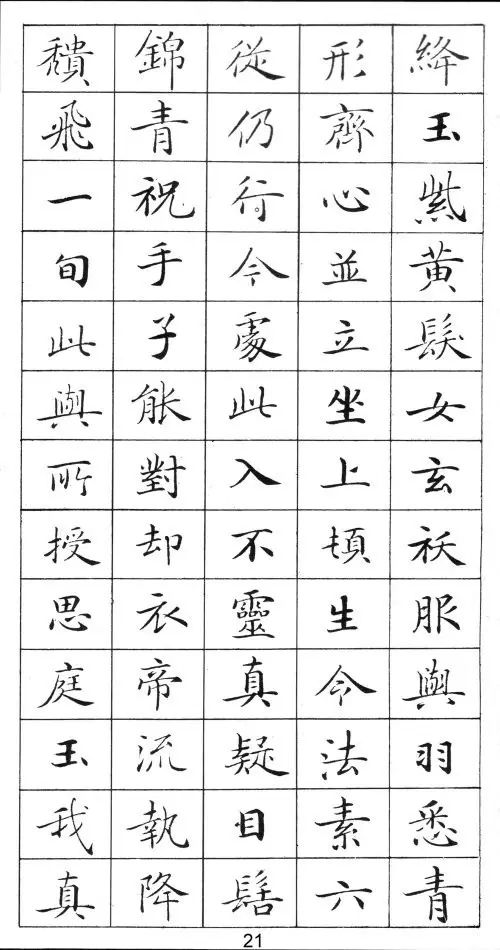 絳玉紫黃髮女玄袄服與羽悉青
形齊心並立坐上頓生今法素六
從仍行今處此入不靈真疑目髻
錦青祝手子能對却衣帝流執降
穨飛一旬此與所授思庭玉我真
21